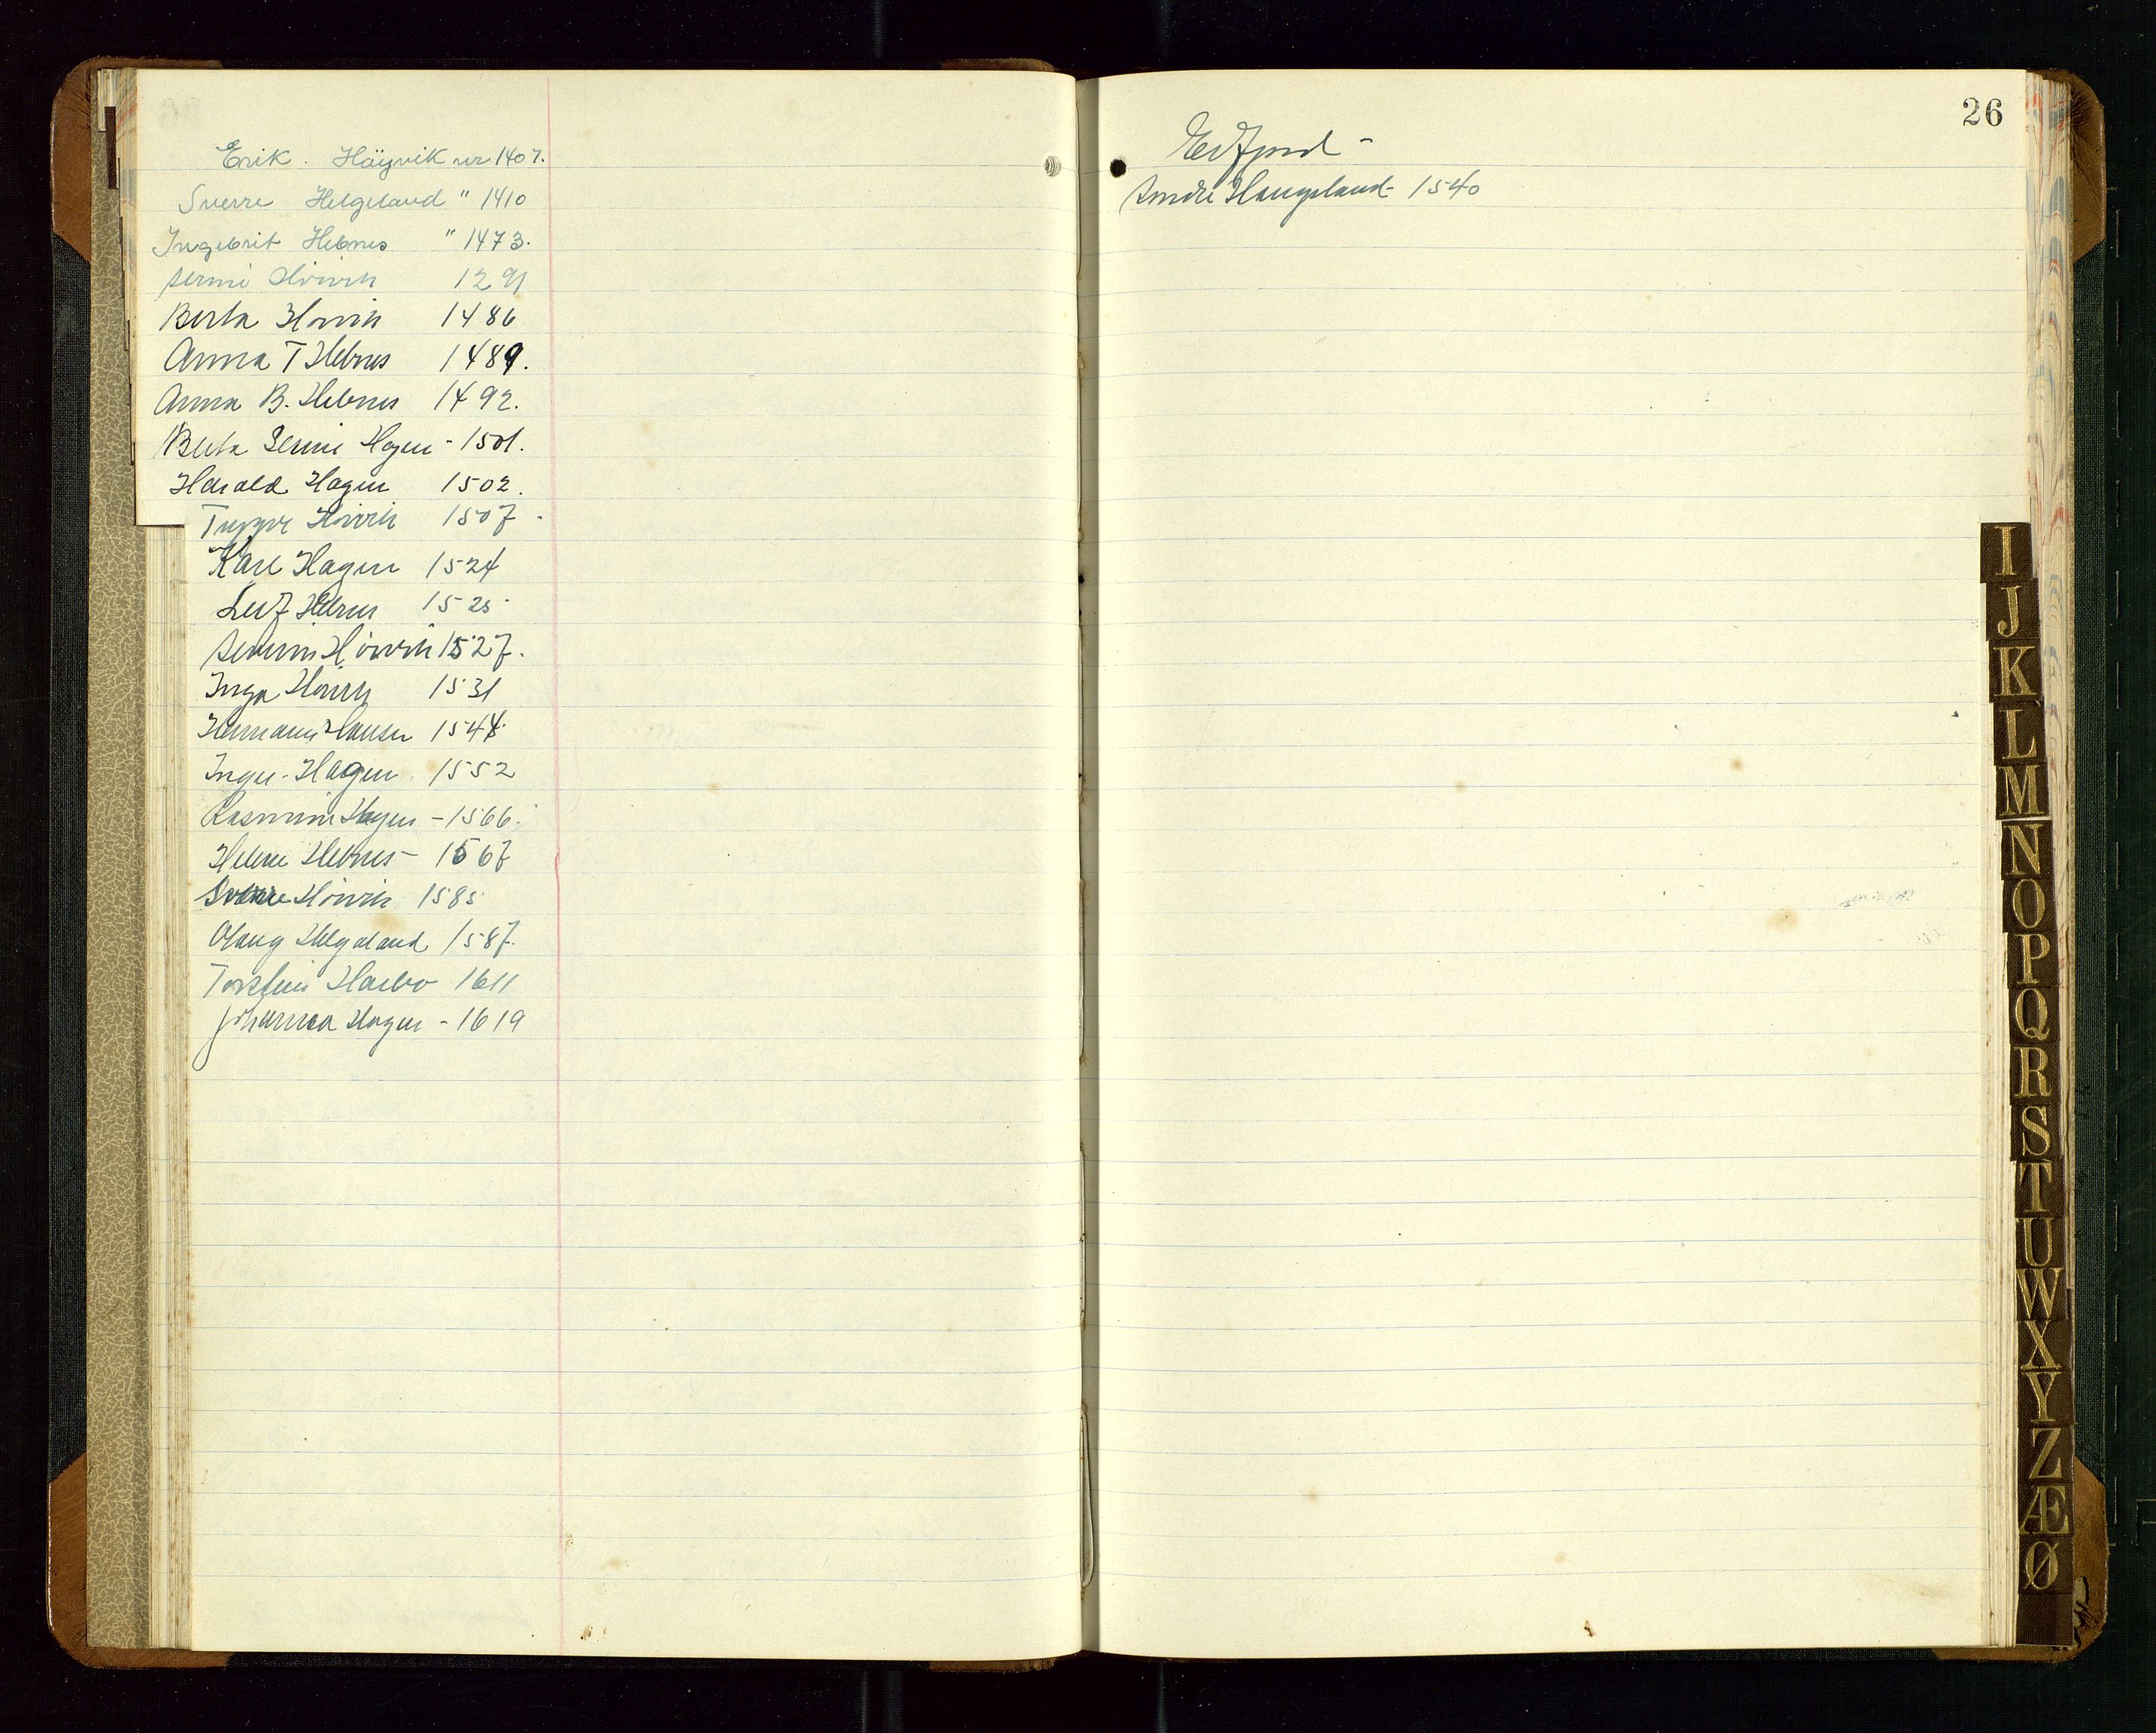 Erik. Höyvik nr. 1407.
Sverre Helgeland " 1410
Ingebrit Hebnes " 1473.
Hövik 1291
Berta Hövik 1486
Anna T Hebnes 1489.
Anna B. Hebnes 1492.
Berta Serine Hagen - 1501.
Harald Hagen 1502.
Trygve Hövik 1507
Kare Hagen 1524
Leif Hebnes 1525
Severin Hövik 1527.
Inga Hövik 1531
Hermann Hansen 1544
Inger Hagen 1552
Rasmine Hagen - 1566.
Helene Hebnes - 1567
Sverre Hövik 1585
Olaug Helgaland 1587.
Torstein Harbo 1611
Johanna Hagen - 1619
26
Erfjord -
Sindre Haugeland - 1540
I
J
K
L
M
N
O
P
Q
R
S
T
U
W
X
Y
Z
Æ
Ø